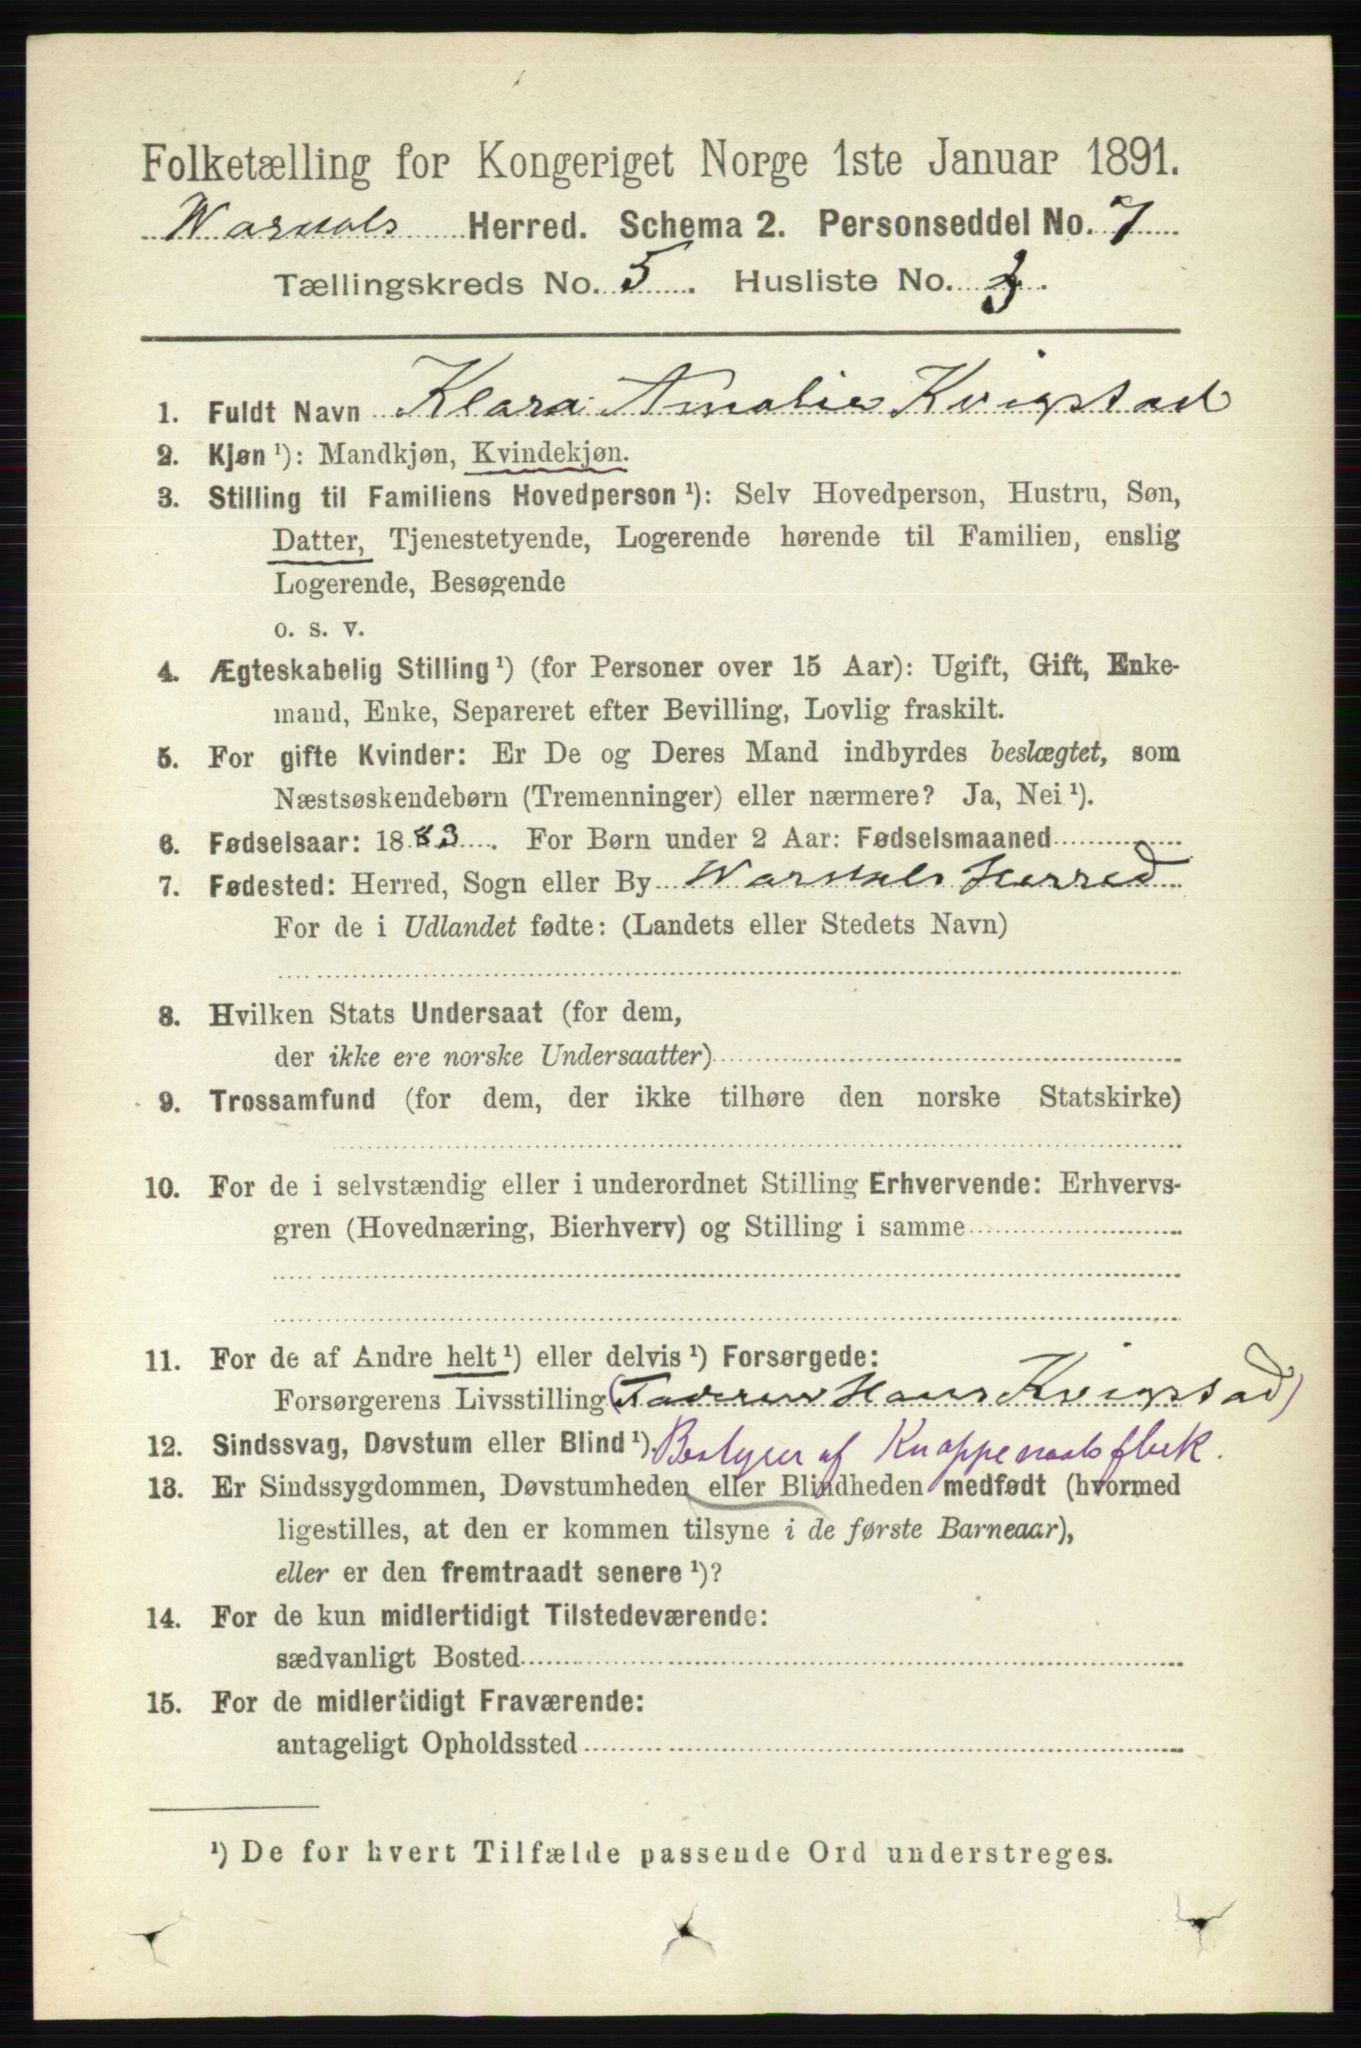 Folketælling for Kongeriget Norge 1ste Januar 1891.
Warnals Herred. Schema 2. Personseddel No. 7
Tællingskreds No. 5. Husliste No. 3.
1. Fuldt Navn Klara Amalie Kvigstad
2. Kjøn ¹): Mandkjøn, Kvindekjøn.
3. Stilling til Familiens Hovedperson ¹): Selv Hovedperson, Hustru, Søn,
Datter, Tjenestetyende, Logerende hørende til Familien, enslig
Logerende, Besøgende
o. s. v.
4. Ægteskabelig Stilling ¹) (for Personer over 15 Aar): Ugift, Gift, Enke-
mand, Enke, Separeret efter Bevilling, Lovlig fraskilt.
5. For gifte Kvinder: Er De og Deres Mand indbyrdes beslægtet, som
Næstsøskendebørn (Tremenninger) eller nærmere? Ja, Nei ¹).
6. Fødselsaar: 1883. For Børn under 2 Aar: Fødselsmaaned
7. Fødested: Herred, Sogn eller By Warnals Herred
For de i Udlandet fødte: (Landets eller Stedets Navn)
8. Hvilken Stats Undersaat (for dem,
der ikke ere norske Undersaatter)
9. Trossamfund (for dem, der ikke tilhøre den norske Statskirke)
10. For de i selvstændig eller i underordnet Stilling Erhvervende: Erhvervs-
gren (Hovednæring, Bierhverv) og Stilling i samme
11. For de af Andre helt ¹) eller delvis ¹) Forsørgede:
Forsørgerens Livsstilling (Faderen Hans Kvigstad)
12. Sindssvag, Døvstum eller Blind ¹). Bestyrer af Knappenaalsfbrk.
13. Er Sindssygdommen, Døvstumheden eller Blindheden medfødt (hvormed
ligestilles, at den er kommen tilsyne i de første Barneaar),
eller er den fremtraadt senere ¹)?
14. For de kun midlertidigt Tilstedeværende:
sædvanligt Bosted
15. For de midlertidigt Fraværende:
antageligt Opholdssted
¹) De for hvert Tilfælde passende Ord understreges.